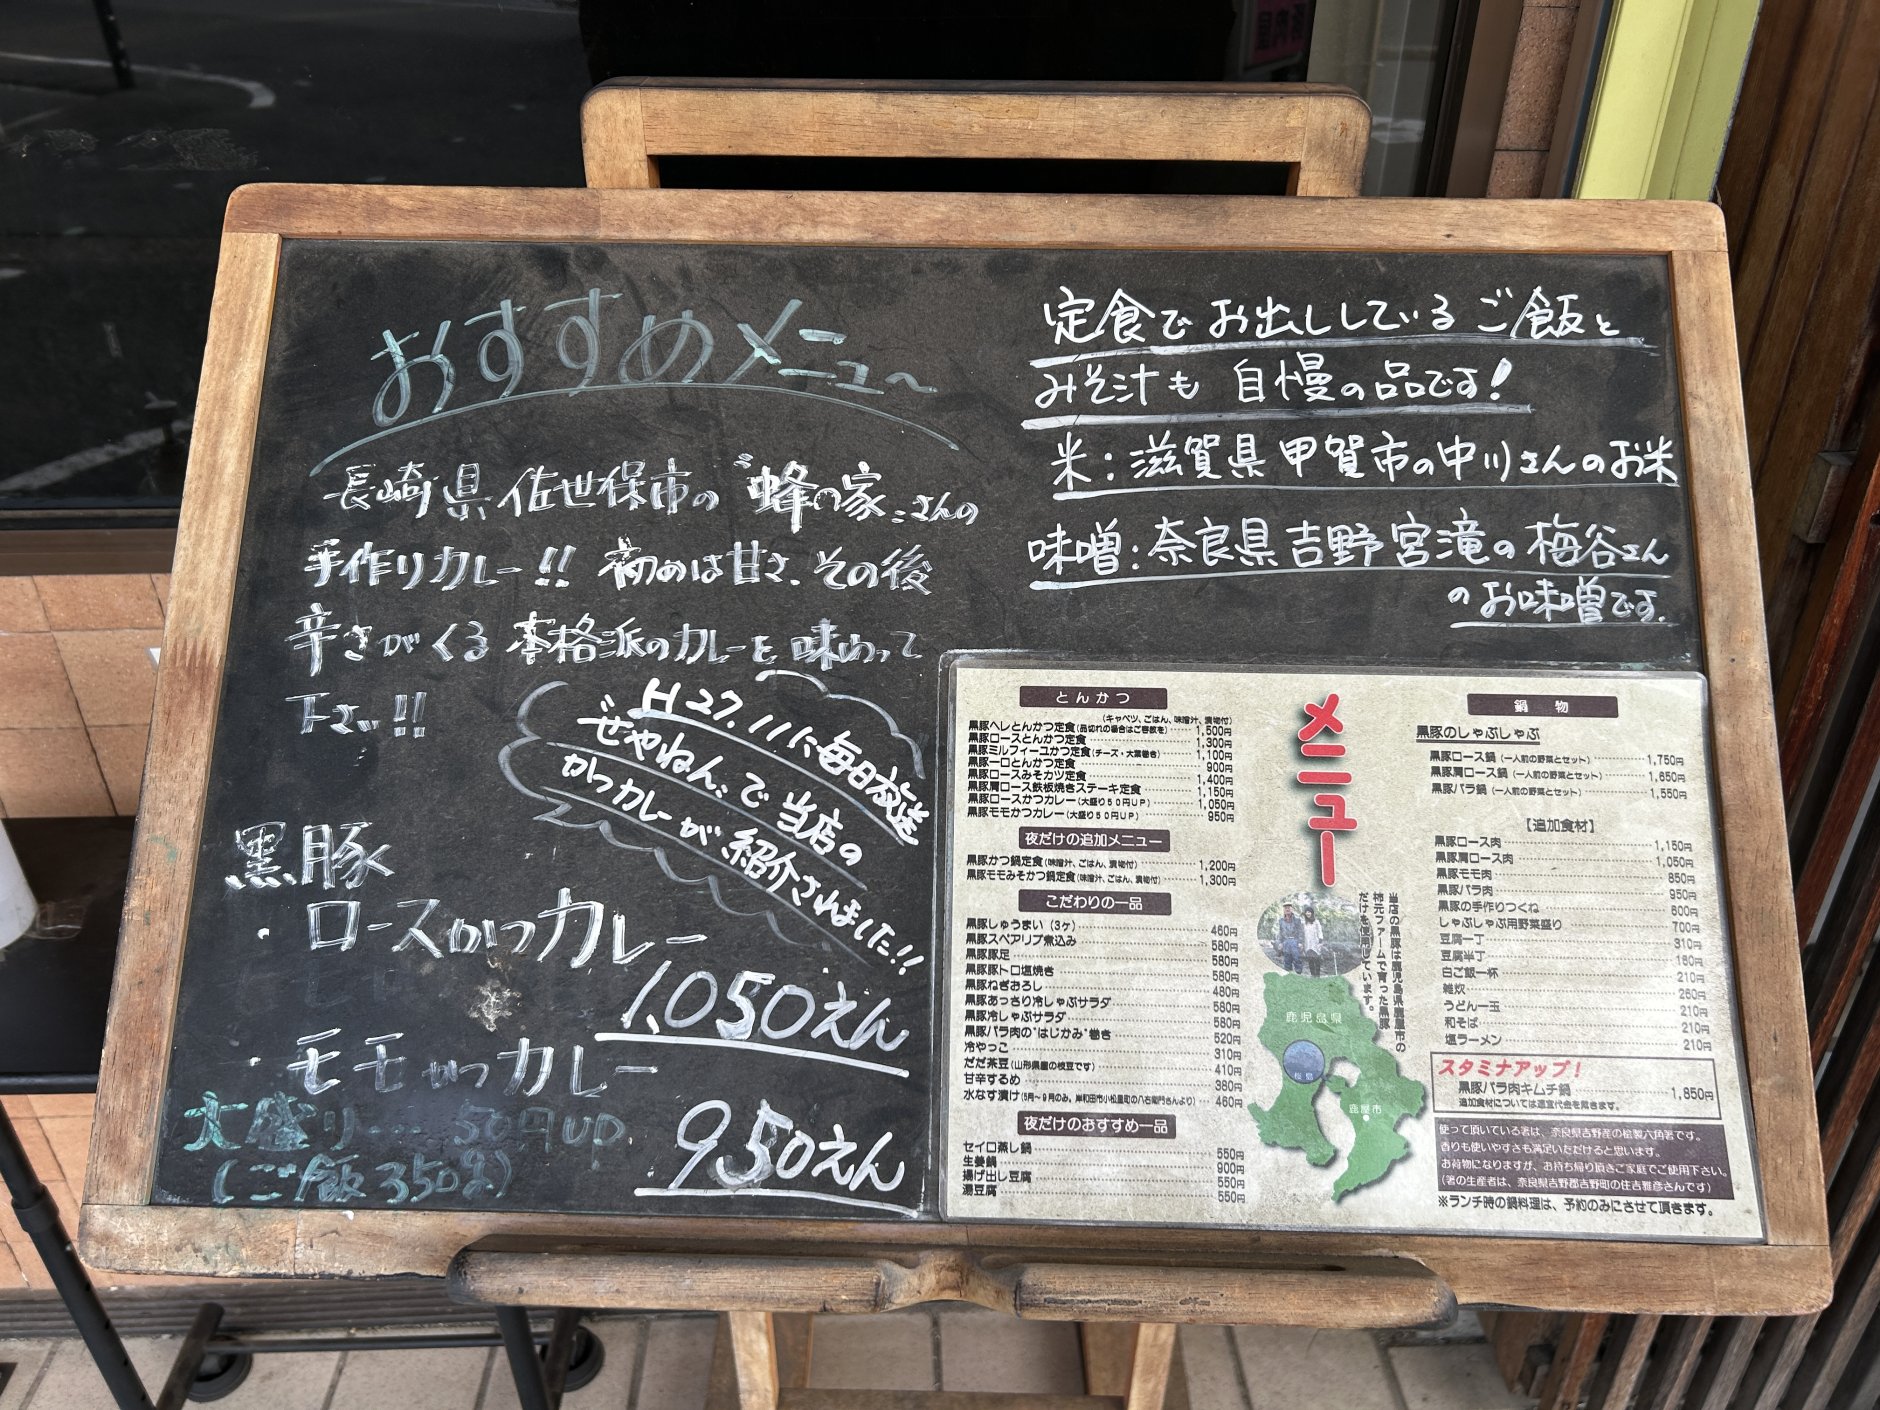 おすすめメニュ～
長崎県佐世保市の〝蜂の家〟さんの
手作りカレー!! 初めは甘さ、その後
辛さがくる 本格派のカレーを 味わって
下さい!!
H27.11に毎日放送
ぜやねん〟で当店の
かつカレーが紹介されました!!
黒豚
・ロースかつカレー
1,050えん
・モモかつカレー
950えん
大盛り…. 50円UP
(ご飯350g)
定食でお出ししているご飯と
みそ汁も 自慢の品です!
米:滋賀県甲賀市の中川さんのお米
味噌:奈良県吉野宮滝の梅谷さん
のお味噌です.
とんかつ
(キャベツ、ごはん、味噌汁、漬物付)
黒豚ヘレとんかつ定食(品切れの場合はご容赦を) 1,500円
黒豚ロースとんかつ定食 1,300円
黒豚ミルフィーユかつ定食(チーズ・大葉巻き) 1,100円
黒豚一口とんかつ定食 900円
黒豚ロースみそカツ定食 1,400円
黒豚肩ロース鉄板焼きステーキ定食 1,150円
黒豚ロースかつカレー(大盛り50円UP) 1,050円
黒豚モモかつカレー(大盛り50円UP) 950円
夜だけの追加メニュー
黒豚かつ鍋定食(味噌汁、ごはん、漬物付) 1,200円
黒豚モモみそかつ鍋定食(味噌汁、ごはん、漬物付) 1,300円
こだわりの一品
黒豚しゅうまい(3ケ) 460円
黒豚スペアリブ煮込み 580円
黒豚豚足 580円
黒豚豚トロ塩焼き 580円
黒豚ねぎおろし 480円
黒豚あっさり冷しゃぶサラダ 580円
黒豚冷しゃぶサラダ 580円
黒豚バラ肉の"はじかみ"巻き 520円
冷やっこ 310円
だだ茶豆(山形県産の枝豆です) 410円
甘辛するめ 380円
水なす漬け(5月～9月のみ。岸和田市小松里町の八右衛門さんより) 460円
夜だけのおすすめ一品
セイロ蒸し鍋 550円
生姜鍋 900円
揚げ出し豆腐 550円
湯豆腐 550円
メニュー
当店の黒豚は鹿児島県鹿屋市の
柿元ファームで育った黒豚
だけを使用しています。
鹿児島県
桜島
鹿屋市
鍋物
黒豚のしゃぶしゃぶ
黒豚ロース鍋(一人前の野菜とセット) 1,750円
黒豚肩ロース鍋(一人前の野菜とセット) 1,650円
黒豚バラ鍋(一人前の野菜とセット) 1,550円
【追加食材】
黒豚ロース肉 1,150円
黒豚肩ロース肉 1,050円
黒豚モモ肉 850円
黒豚バラ肉 950円
黒豚の手作りつくね 600円
しゃぶしゃぶ用野菜盛り 700円
豆腐一丁 310円
豆腐半丁 160円
白ご飯一杯 210円
雑炊 260円
うどん一玉 210円
和そば 210円
塩ラーメン 210円
スタミナアップ!
黒豚バラ肉キムチ鍋 1,850円
追加食材については適宜代金を戴きます。
使って頂いている箸は、奈良県吉野産の桧製六角箸です。
香りも使いやすさも満足いただけると思います。
お荷物になりますが、お持ち帰り頂きご家庭でご使用下さい。
(箸の生産者は、奈良県吉野郡吉野町の住吉雅彦さんです)
※ランチ時の鍋料理は、予約のみにさせて頂きます。